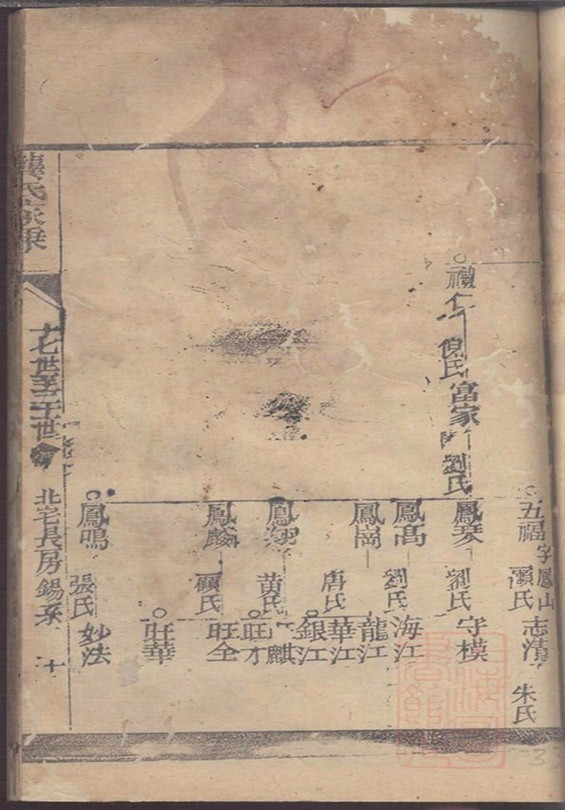 五福 字鳳山 顧氏 志清 朱氏
禮仁 倪氏 富家 劉氏
鳳琹 劉氏 守模
鳳高 劉氏 海江
鳳崗 唐氏 龍江
華江
銀江
鳳翔 黄氏 麒
旺才
鳳 顧氏 旺全
旺華
鳳鳴 張氏 妙法
龔氏家乗
十七世至二十世 北宅長房錫系 十
33